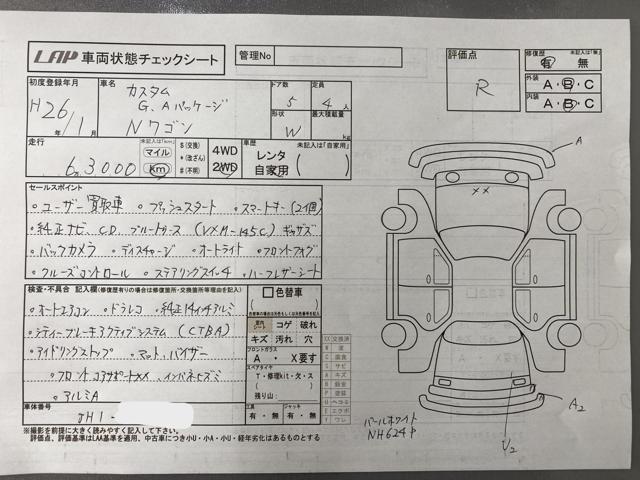 LAP 車両状態チェックシート
管理No
評価点
R
修復歴 未記入は「無」
有・無
外装 A・B・C
内装 A・B・C
初度登録年月
H26/1
年 月
車名
カスタム
G.Aパッケージ
Nワゴン
ドア数
5
定員
4人
形状
W
最大積載量
kg
走行 未記入は「km」
63000
マイル
km
$(交換)
*(改ざん)
#(不明)
4WD
2WD
車歴 未記入は「自家用」
レンタ
自家用
セールスポイント
・ユーザー買取車 ・プッシュスタート ・スマートキー(2個)
・純正ナビ、CD、ブルートゥース(VXM-145C)ギャザズ
・バックカメラ ・ディスチャージ ・オートライト ・フロントフォグ
・クルーズコントロール ・ステアリングスイッチ ・ハーフレザーシート
検査・不具合 記入欄(修復歴有りの場合は修復箇所・交換箇所等理由を記入)
・オートエアコン ・ドラレコ ・純正14インチアルミ
・シティーブレーキアクティブシステム(CTBA)
・アイドリングストップ ・マット、バイザー
・フロントコアサポートXX、インパネヒズミ
・アルミA
色替車
コゲ 破れ
キズ 汚れ 穴
フロントガラス
A ・ X要す
スペアタイヤ
T・修理kit・欠・ス
残り山:
工具
有・無
ジャッキ
有・無
車体番号
JH1-
※撮影を前提に大きく読みやすく記入して下さい。
評価点、評価基準はLAA基準を適用、中古車につき小U・小A・小U・経年劣化はあるものとする
XX 交換済
X 要
C 腐食
S サビ
A キズ
B 鈑金
P 塗装
U ヘコミ
E エクボ
Y ワレ
A
XX
A2
U2
パールホワイト
NH624P